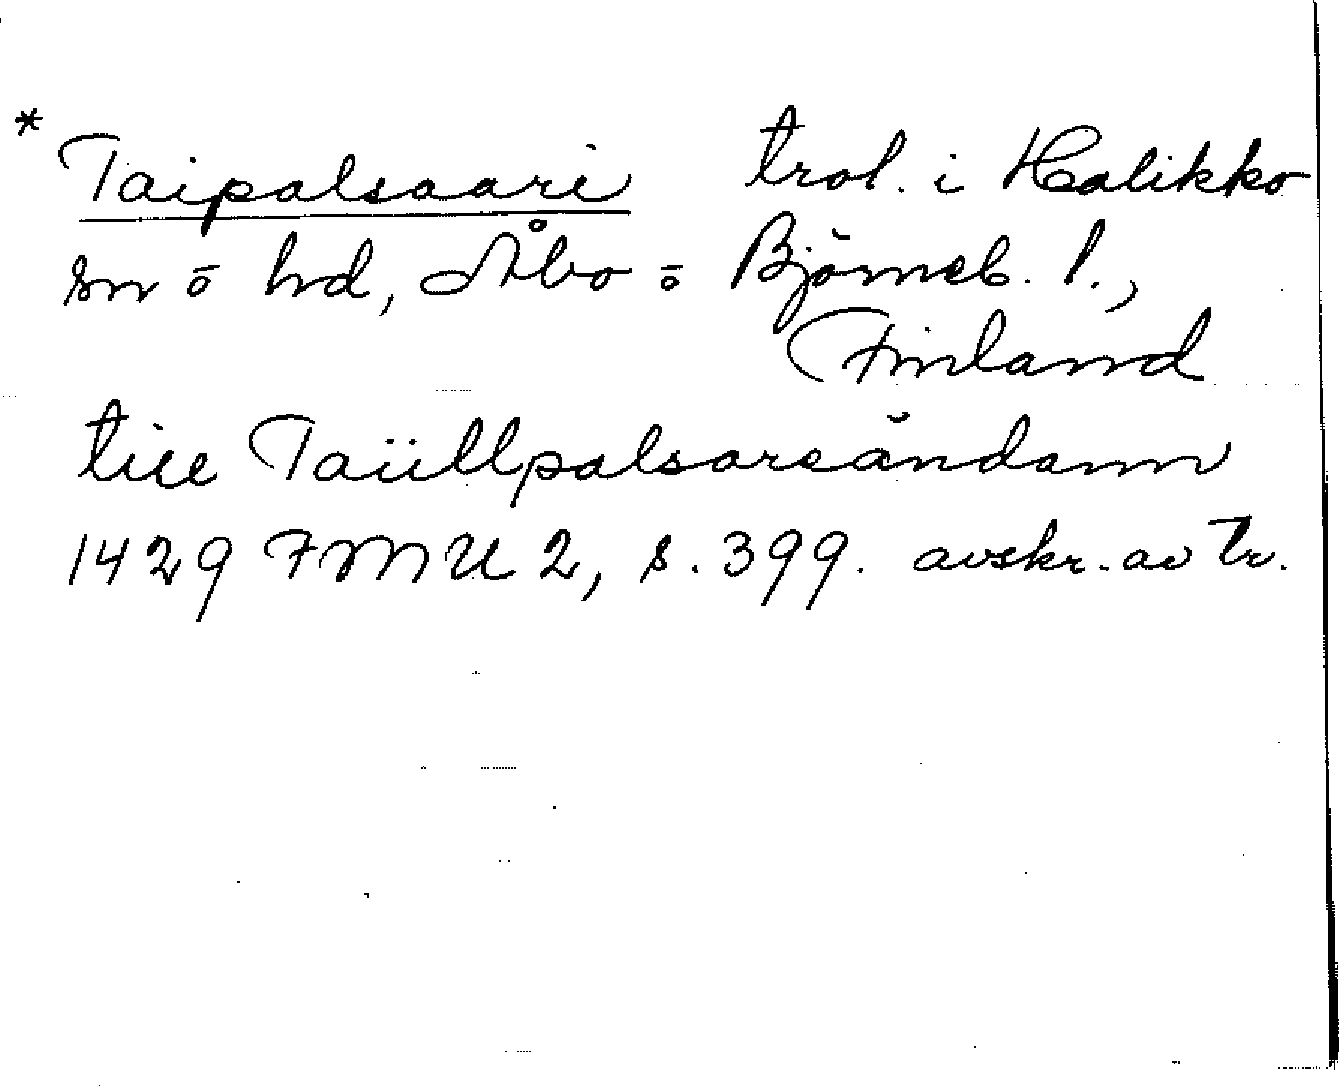 * Taipalsaari trol. i Halikko
sn o hd, Åbo o Björneb. l.,
Finland
till Taiillpalsareåndann
1429 FMU 2, s. 399. avskr. av tr.